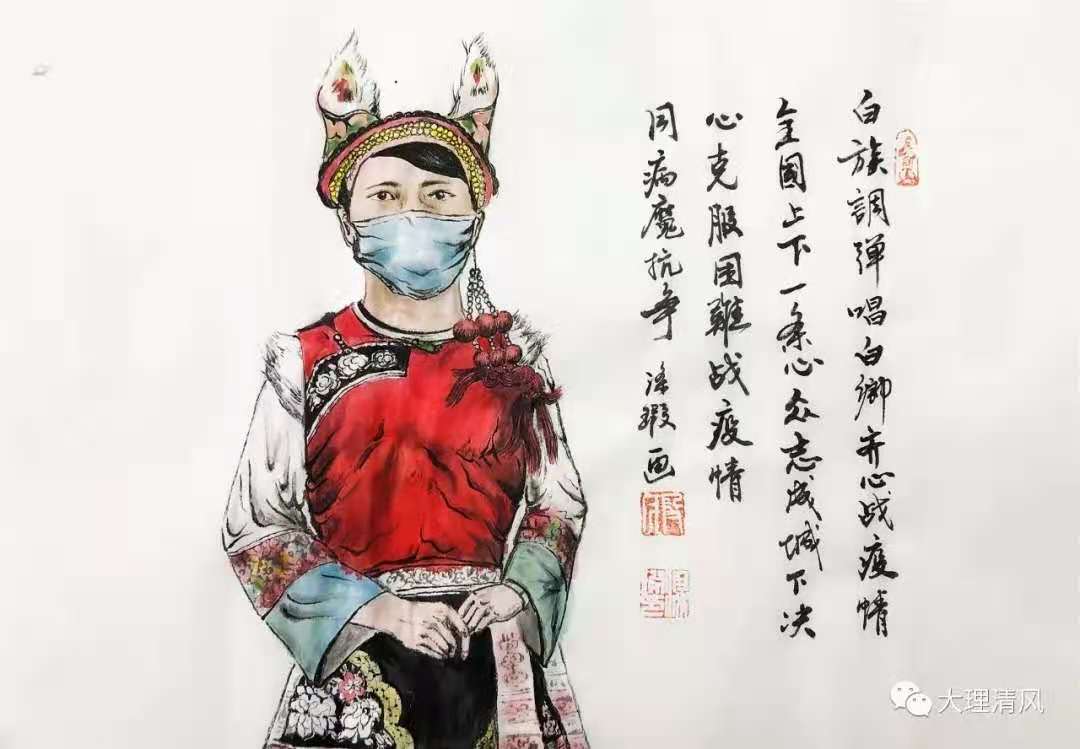 白族調弹唱白鄉齐心战疫情
全國上下一条心众志成城下决
心克服困難战疫情
同病魔抗争 涂瑕画
大理清风